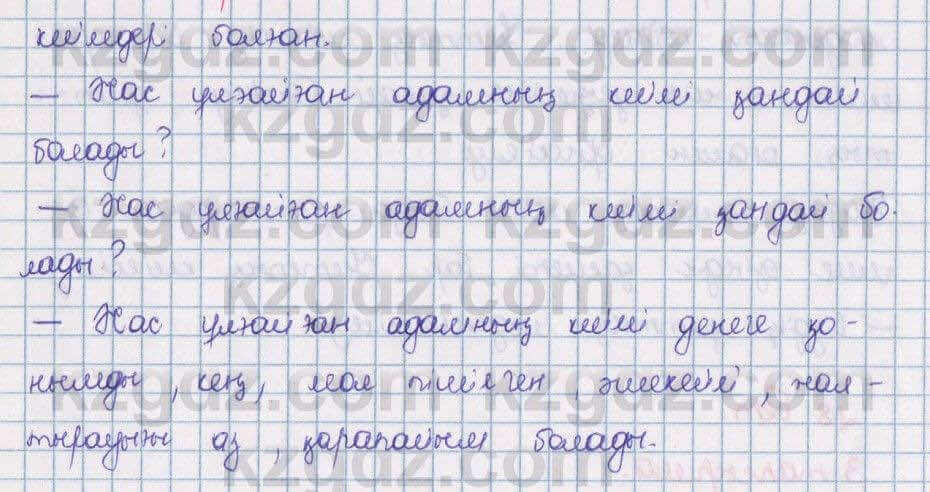 киімдері болған.
— Жас ұлғайған адамның киімі қандай
болады?
— Жас ұлғайған адамның киімі қандай бо-
лады?
— Жас ұлғайған адамның киімі денеге қо-
нымды, кең, мол пішілген, әшекейі, жал-
тырауығы аз, қарапайым болады.
kzgdz.com